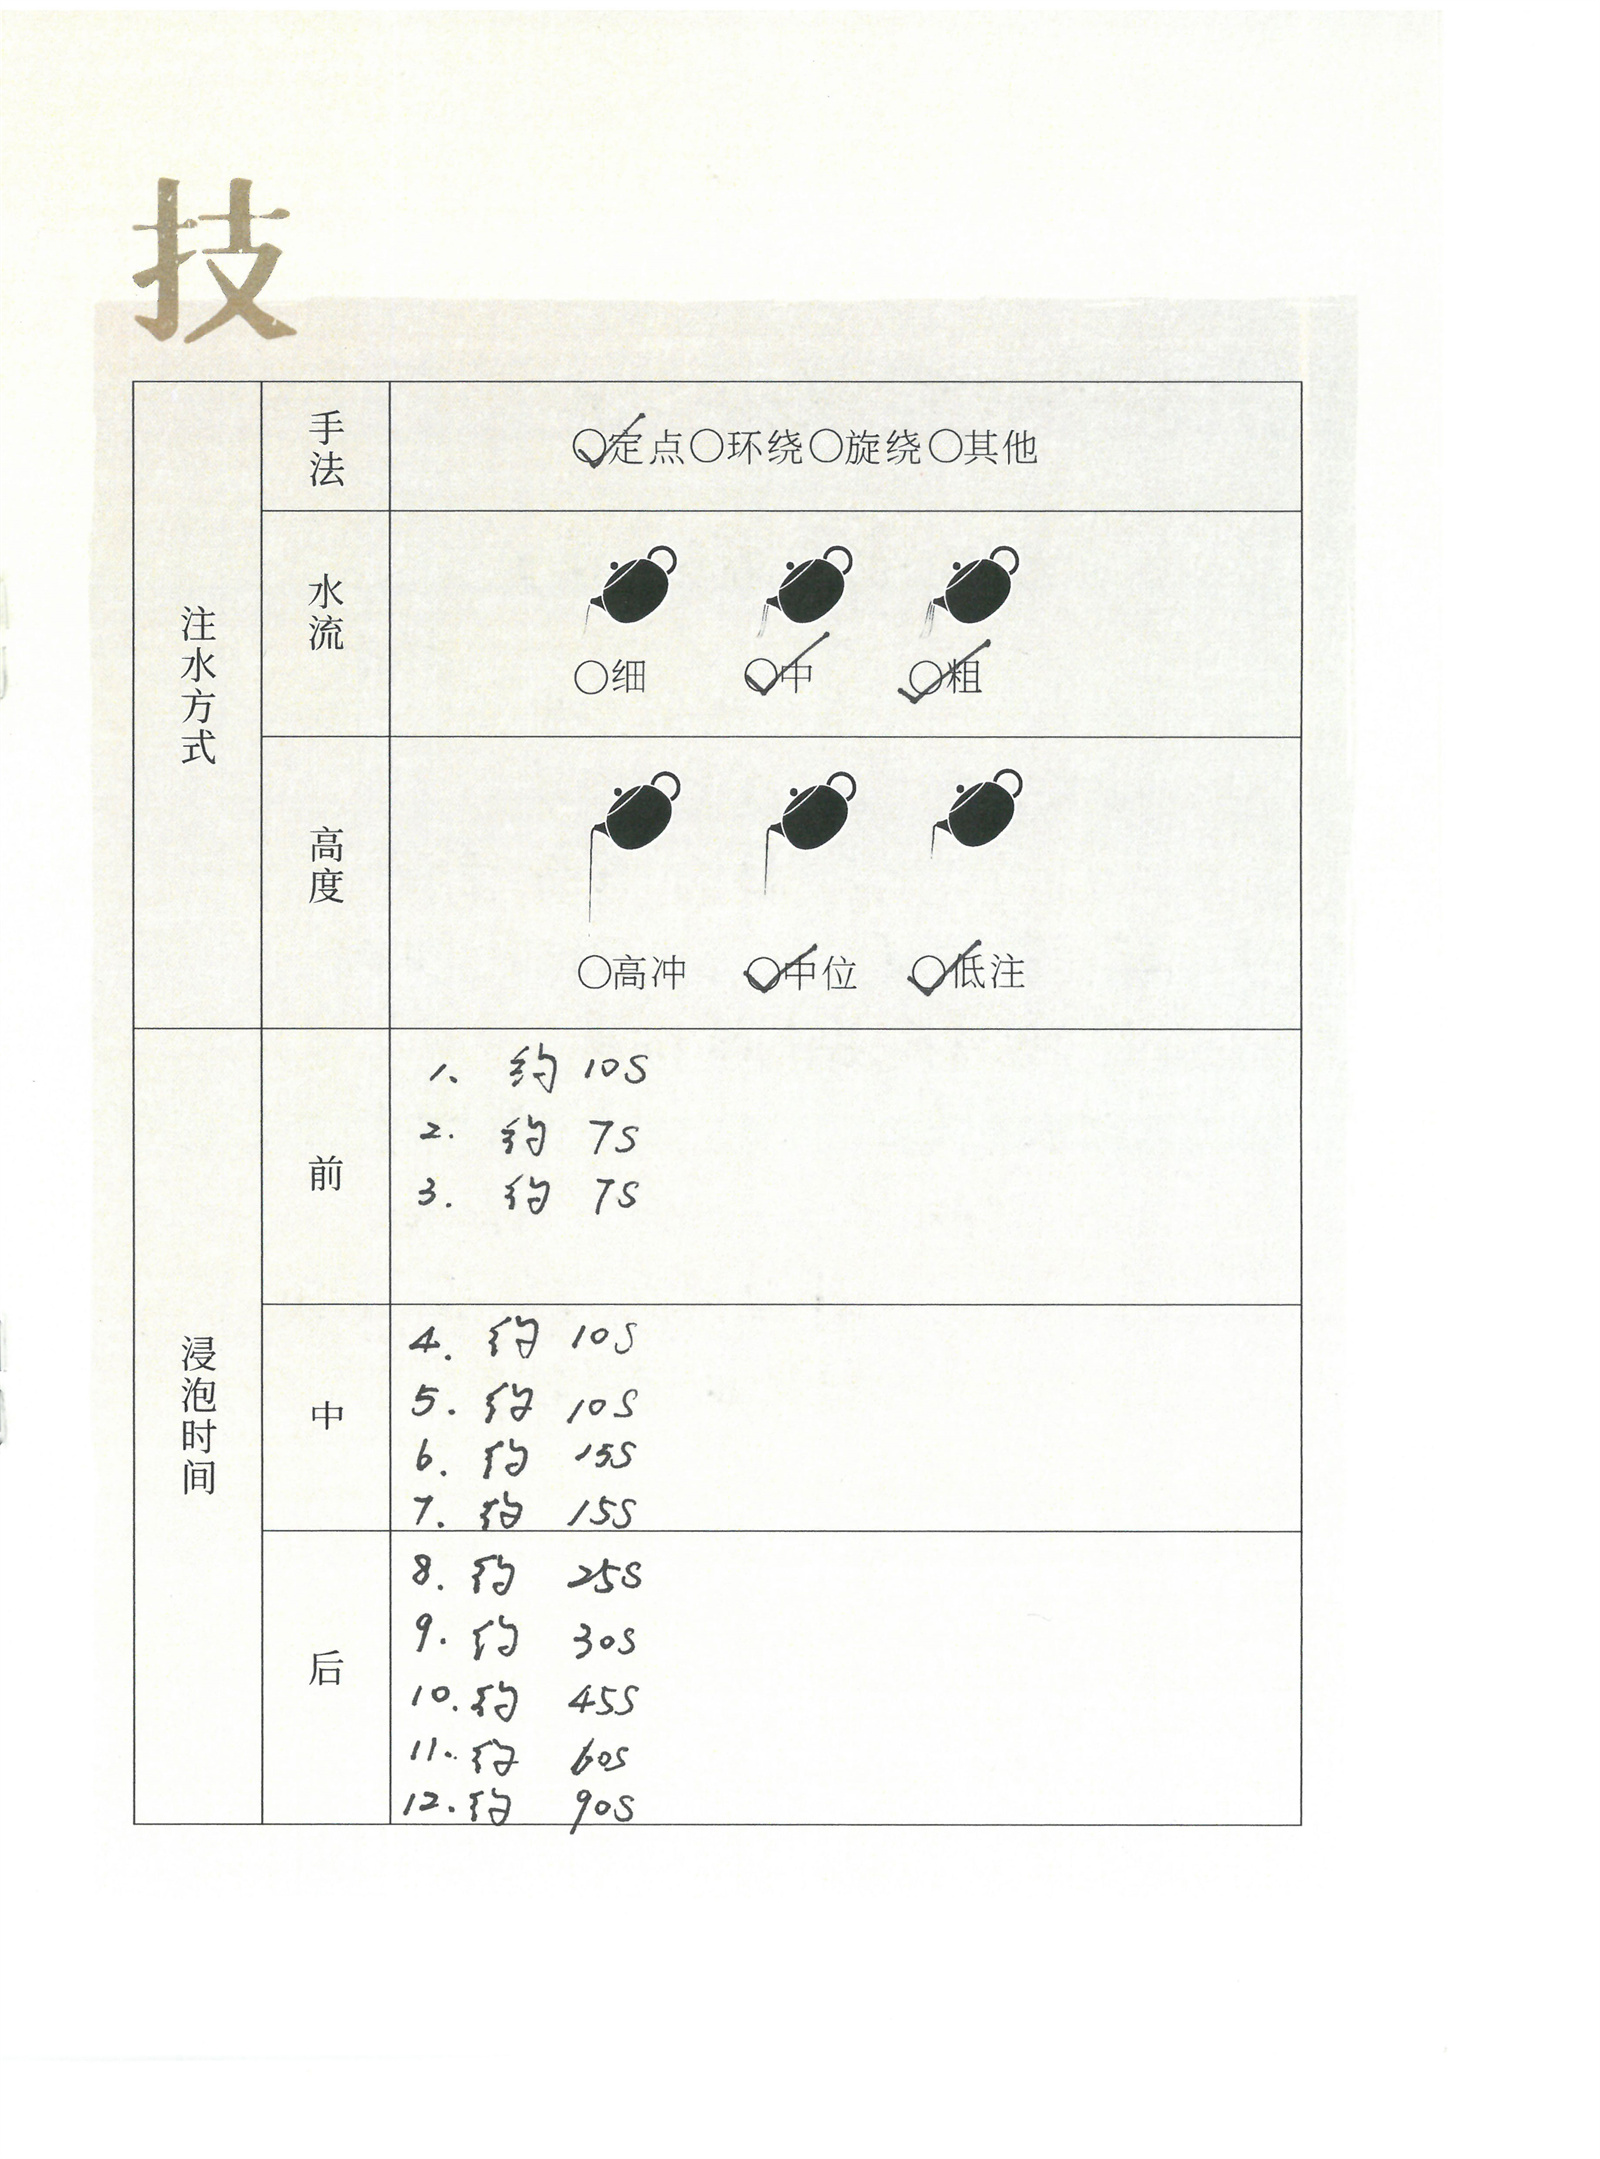 技
注水方式
手法
○定点○环绕○旋绕○其他
水流
○细 ○中 ○粗
高度
○高冲 ○中位 ○低注
浸泡时间
前
1、 约 10S
2. 约 7S
3. 约 7S
中
4. 约 10S
5. 约 10S
6. 约 15S
7. 约 15S
后
8. 约 25S
9. 约 30S
10. 约 45S
11. 约 60S
12. 约 90S